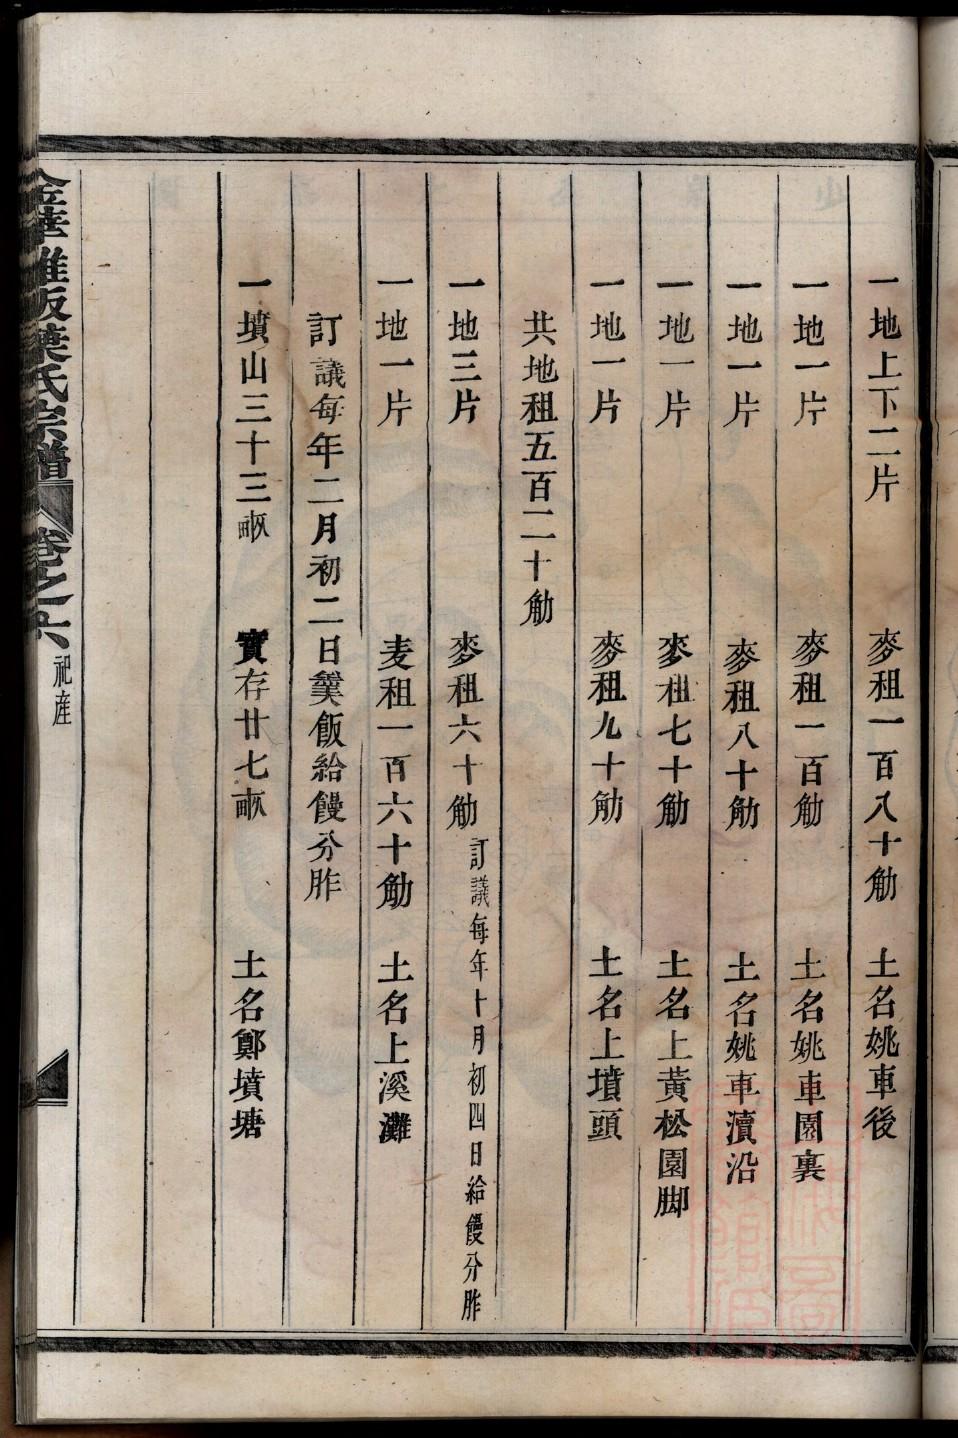 一地上下二片 麥租一百八十觔 土名姚車後
一地一片 麥租一百觔 土名姚車園裏
一地一片 麥租八十觔 土名姚車瀆沿
一地一片 麥租七十觔 土名上黃松園脚
一地一片 麥租九十觔 土名上墳頭
共地租五百二十觔
一地三片 麥租六十觔 訂議每年十月初四日給饅分胙
一地一片 麦租一百六十觔 土名上溪灘
訂議每年二月初二日羹飯給饅分胙
一墳山三十三畝 實存廿七畝 土名鄭墳塘
金華雅畈葉氏宗譜 卷之六 祀産